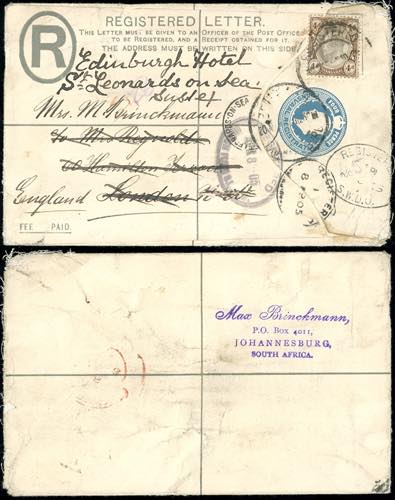 REGISTERED LETTER.
THIS LETTER MUST BE GIVEN TO AN OFFICER OF THE POST OFFICE
TO BE REGISTERED, AND A RECEIPT OBTAINED FOR IT.
THE ADDRESS MUST BE WRITTEN ON THIS SIDE.
R
Edinburgh Hotel
St Leonards on Sea
Sussex
Mrs. M Brinckmann
to Mrs Reynolds
60 Hamilton Terrace
England London N.W.
FEE PAID.
ST LEONARDS-ON-SEA
REGISTERED
S.W.D.O.
Max Brinckmann,
P.O. Box 4011,
JOHANNESBURG,
SOUTH AFRICA.